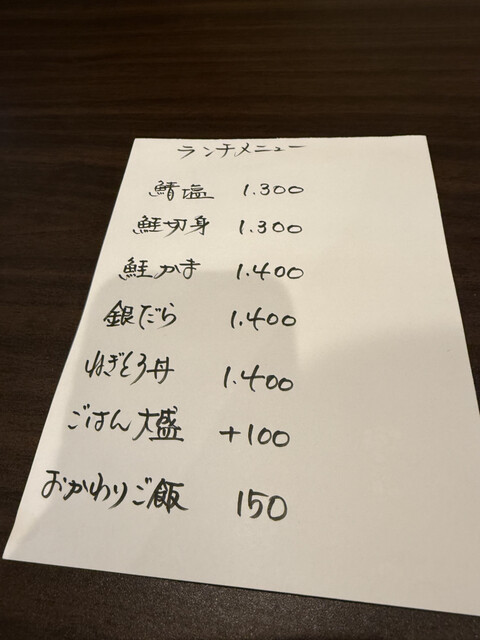 ランチメニュー
鯖塩 1.300
鮭切身 1.300
鮭かま 1.400
銀だら 1.400
ねぎとろ丼 1.400
ごはん大盛 +100
おかわりご飯 150